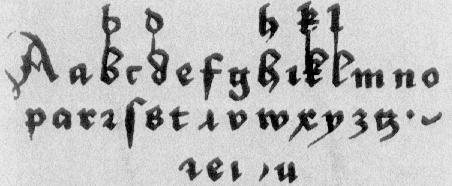 b d h k l
A a b c d e f g h i k l m n o
p q r ꝛ ſ s t v w x y z tz
ꝛ e ı u